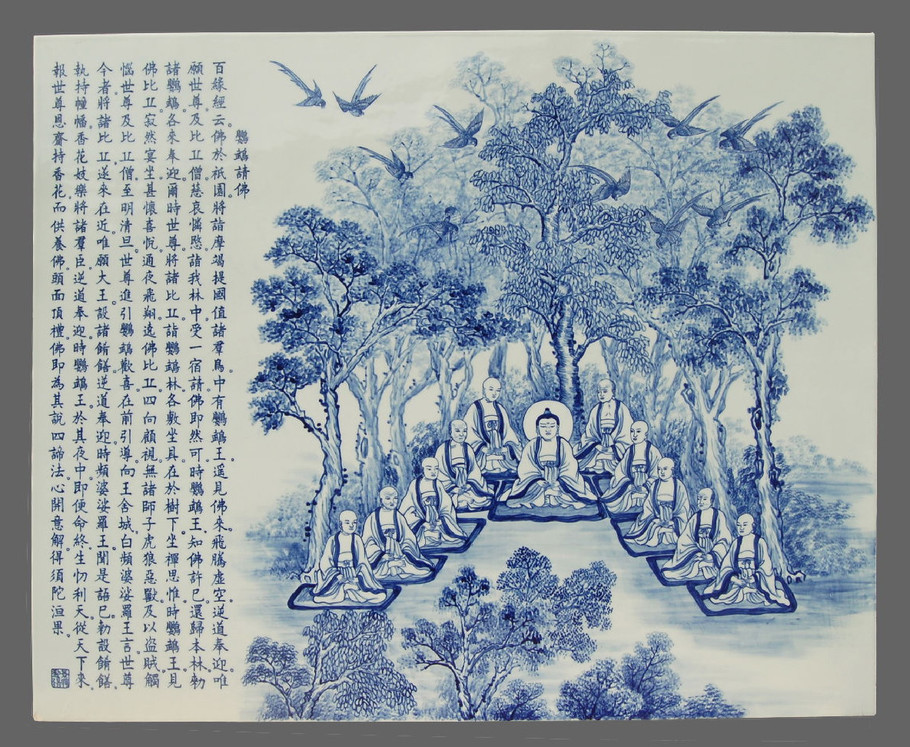 鸚鵡請佛
百緣經云。佛於祇園。將詣摩竭提國。值諸羣鳥。中有鸚鵡王。遥見佛來。飛騰虛空。逆道奉迎。唯
願世尊及比丘僧。慈哀憐愍。詣我林中受一宿請。佛即然可。時鸚鵡王。知佛許已。還歸本林。勑
諸鸚鵡。各來奉迎。爾時世尊。將諸比丘。詣鸚鵡林。各敷坐具。在於樹下。坐禪思惟。時鸚鵡王。見
佛比丘。寂然宴坐。甚懷喜悅。通夜飛翔。遶佛比丘。四向顧視。無諸師子虎狼惡獸及以盜賊。觸
惱世尊及比丘僧。至明清旦。世尊進引。鸚鵡歡喜。在前引導。向王舍城。白頻婆娑羅王言。世尊
今者。將諸比丘。逐來在近。唯願大王。設諸餚饍。逆道奉迎。時頻婆娑羅王。聞是語已。勑設餚饍。
執持幢幡。香花妓樂。將諸羣臣。逆道奉迎。時鸚鵡王。於其夜中。即便命終。生忉利天。從天下來。
報世尊恩。齎持香花。而供養佛。頭面頂禮。佛即為其說四諦法。心開意解。得須陀洹果。